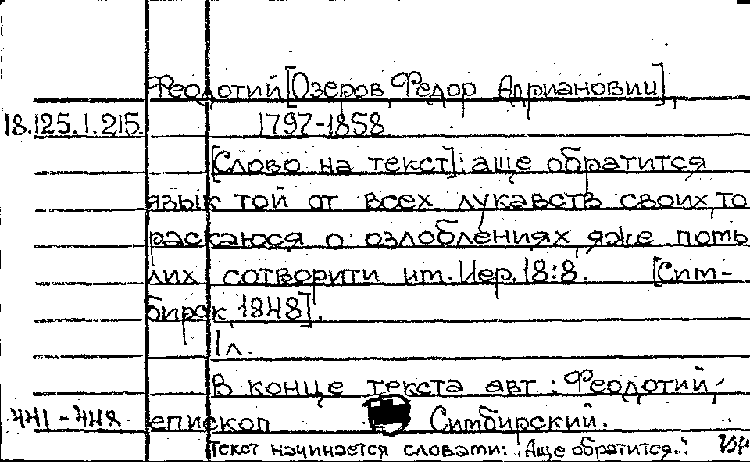 Феодотий [Озеров, Федор Адрианович],
18.125.1.215 1797-1858
[Слово на текст]: аще обратится
язык той от всех лукавств своих, то
раскаюся о озлоблениях яже помы
лих сотворити им. Иер. 18:8. [Сим-
бирск, 1848].
1 л.
В конце текста авт.: Феодотий,
епископ Симбирский.
Текст начинается словами: "Аще обратится."